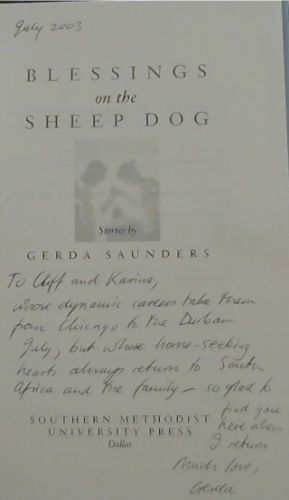 July 2003
BLESSINGS
on the
SHEEP DOG
Stories by
GERDA SAUNDERS
To Cliff and Karina,
whose dynamic careers take them
from Chicago to the Durban
July, but whose home-seeking
hearts always return to South
Africa and the family – so glad to
find you
here when
I return.
Much love,
Gerda
SOUTHERN METHODIST
UNIVERSITY PRESS
Dallas